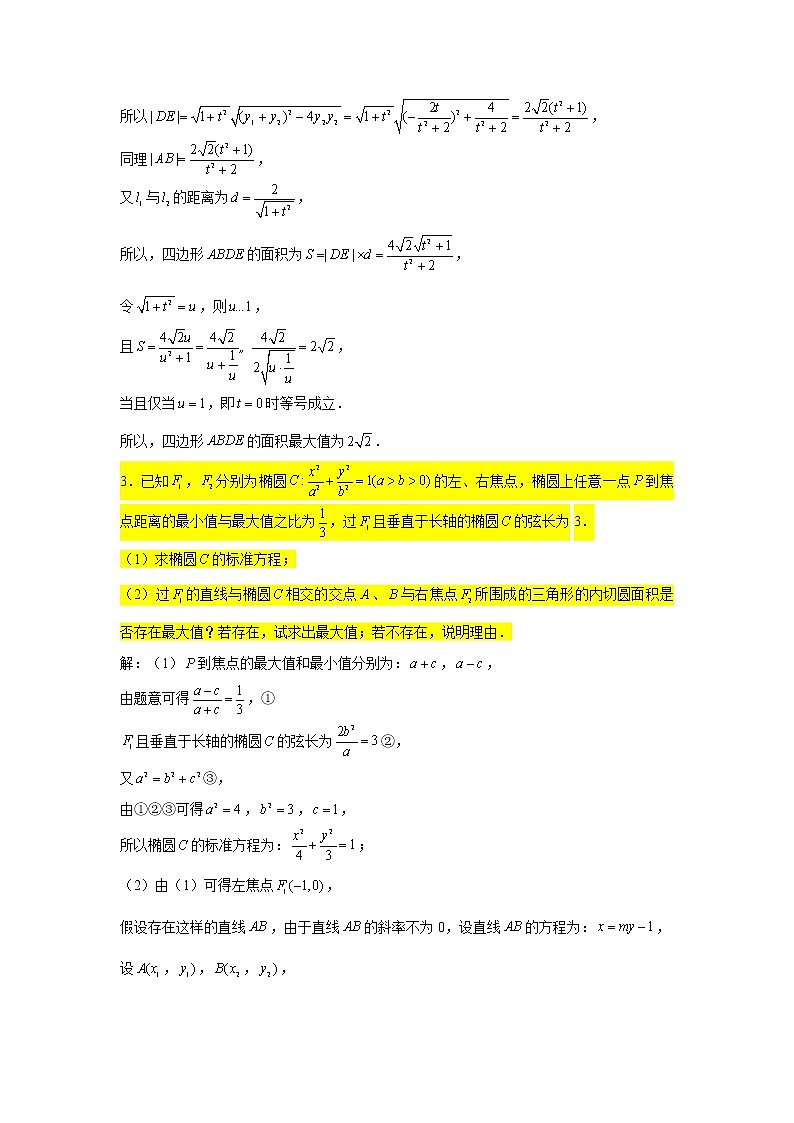 所以|DE|=√(1+t²)√((y₁+y₂)²−4y₂y₂)=√(1+t²)√((−2t/(t²+2))²+4/(t²+2))=2√2(t²+1)/(t²+2),
同理|AB|=2√2(t²+1)/(t²+2),
又l₁与l₂的距离为d=2/√(1+t²),
所以,四边形ABDE的面积为S=|DE|×d=4√2√(t²+1)/(t²+2),
令√(1+t²)=u,则u…1,
且S=4√2u/(u²+1)=4√2/(u+1/u)„4√2/(2√(u·1/u))=2√2,
当且仅当u=1,即t=0时等号成立.
所以,四边形ABDE的面积最大为2√2.
3.已知F₁,F₂分别为椭圆C:x²/a²+y²/b²=1(a>b>0)的左、右焦点,椭圆上任意一点P到焦
点距离的最小值与最大值之比为1/3,过F₁且垂直于长轴的椭圆C的弦长为3.
(1)求椭圆C的标准方程;
(2)过F₁的直线与椭圆C相交的交点A、B与右焦点F₂所围成的三角形的内切圆面积是
否存在最大值?若存在,试求出最大值;若不存在,说明理由.
解:(1)P到焦点的最大值和最小值分别为:a+c,a−c,
由题意可得(a−c)/(a+c)=1/3,①
F₁且垂直于长轴的椭圆C的弦长为2b²/a=3②,
又a²=b²+c²③,
由①②③可得a²=4,b²=3,c=1,
所以椭圆C的标准方程为:x²/4+y²/3=1;
(2)由(1)可得左焦点F₁(−1,0),
假设存在这样的直线AB,由于直线AB的斜率不为0,设直线AB的方程为:x=my−1,
设A(x₁,y₁),B(x₂,y₂),